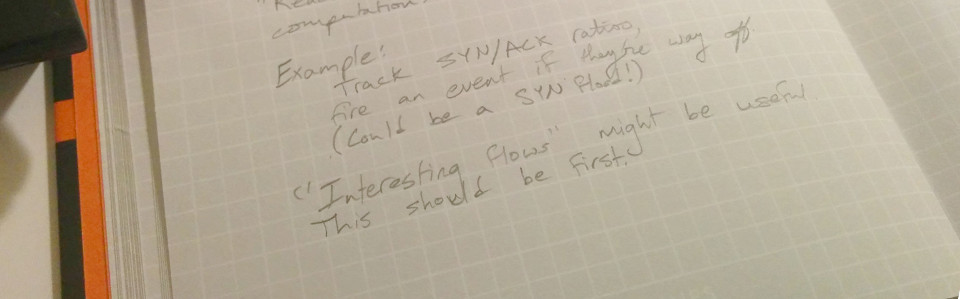 computation.
Example:
Track SYN/ACK ratios,
fire an event if they're way off
(Could be a SYN flood!)
"Interesting flows" might be useful.
This should be first.